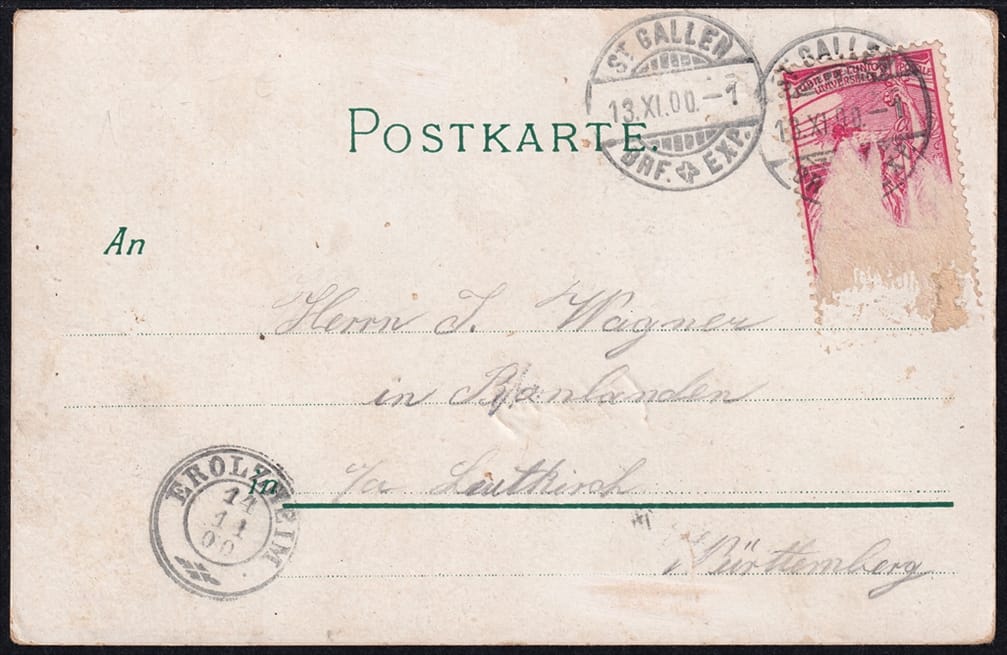 ST. GALLEN
13.XI.00.-1
BRF. EXP.
ST. GALLEN
13.XI.00.-1
JUBILÉ DE L'UNION POSTALE
UNIVERSELLE
POSTKARTE.
An
Herrn J. Wagner
in
in p/a Leutkirch
Württemberg
EROLZHEIM
14
11
00